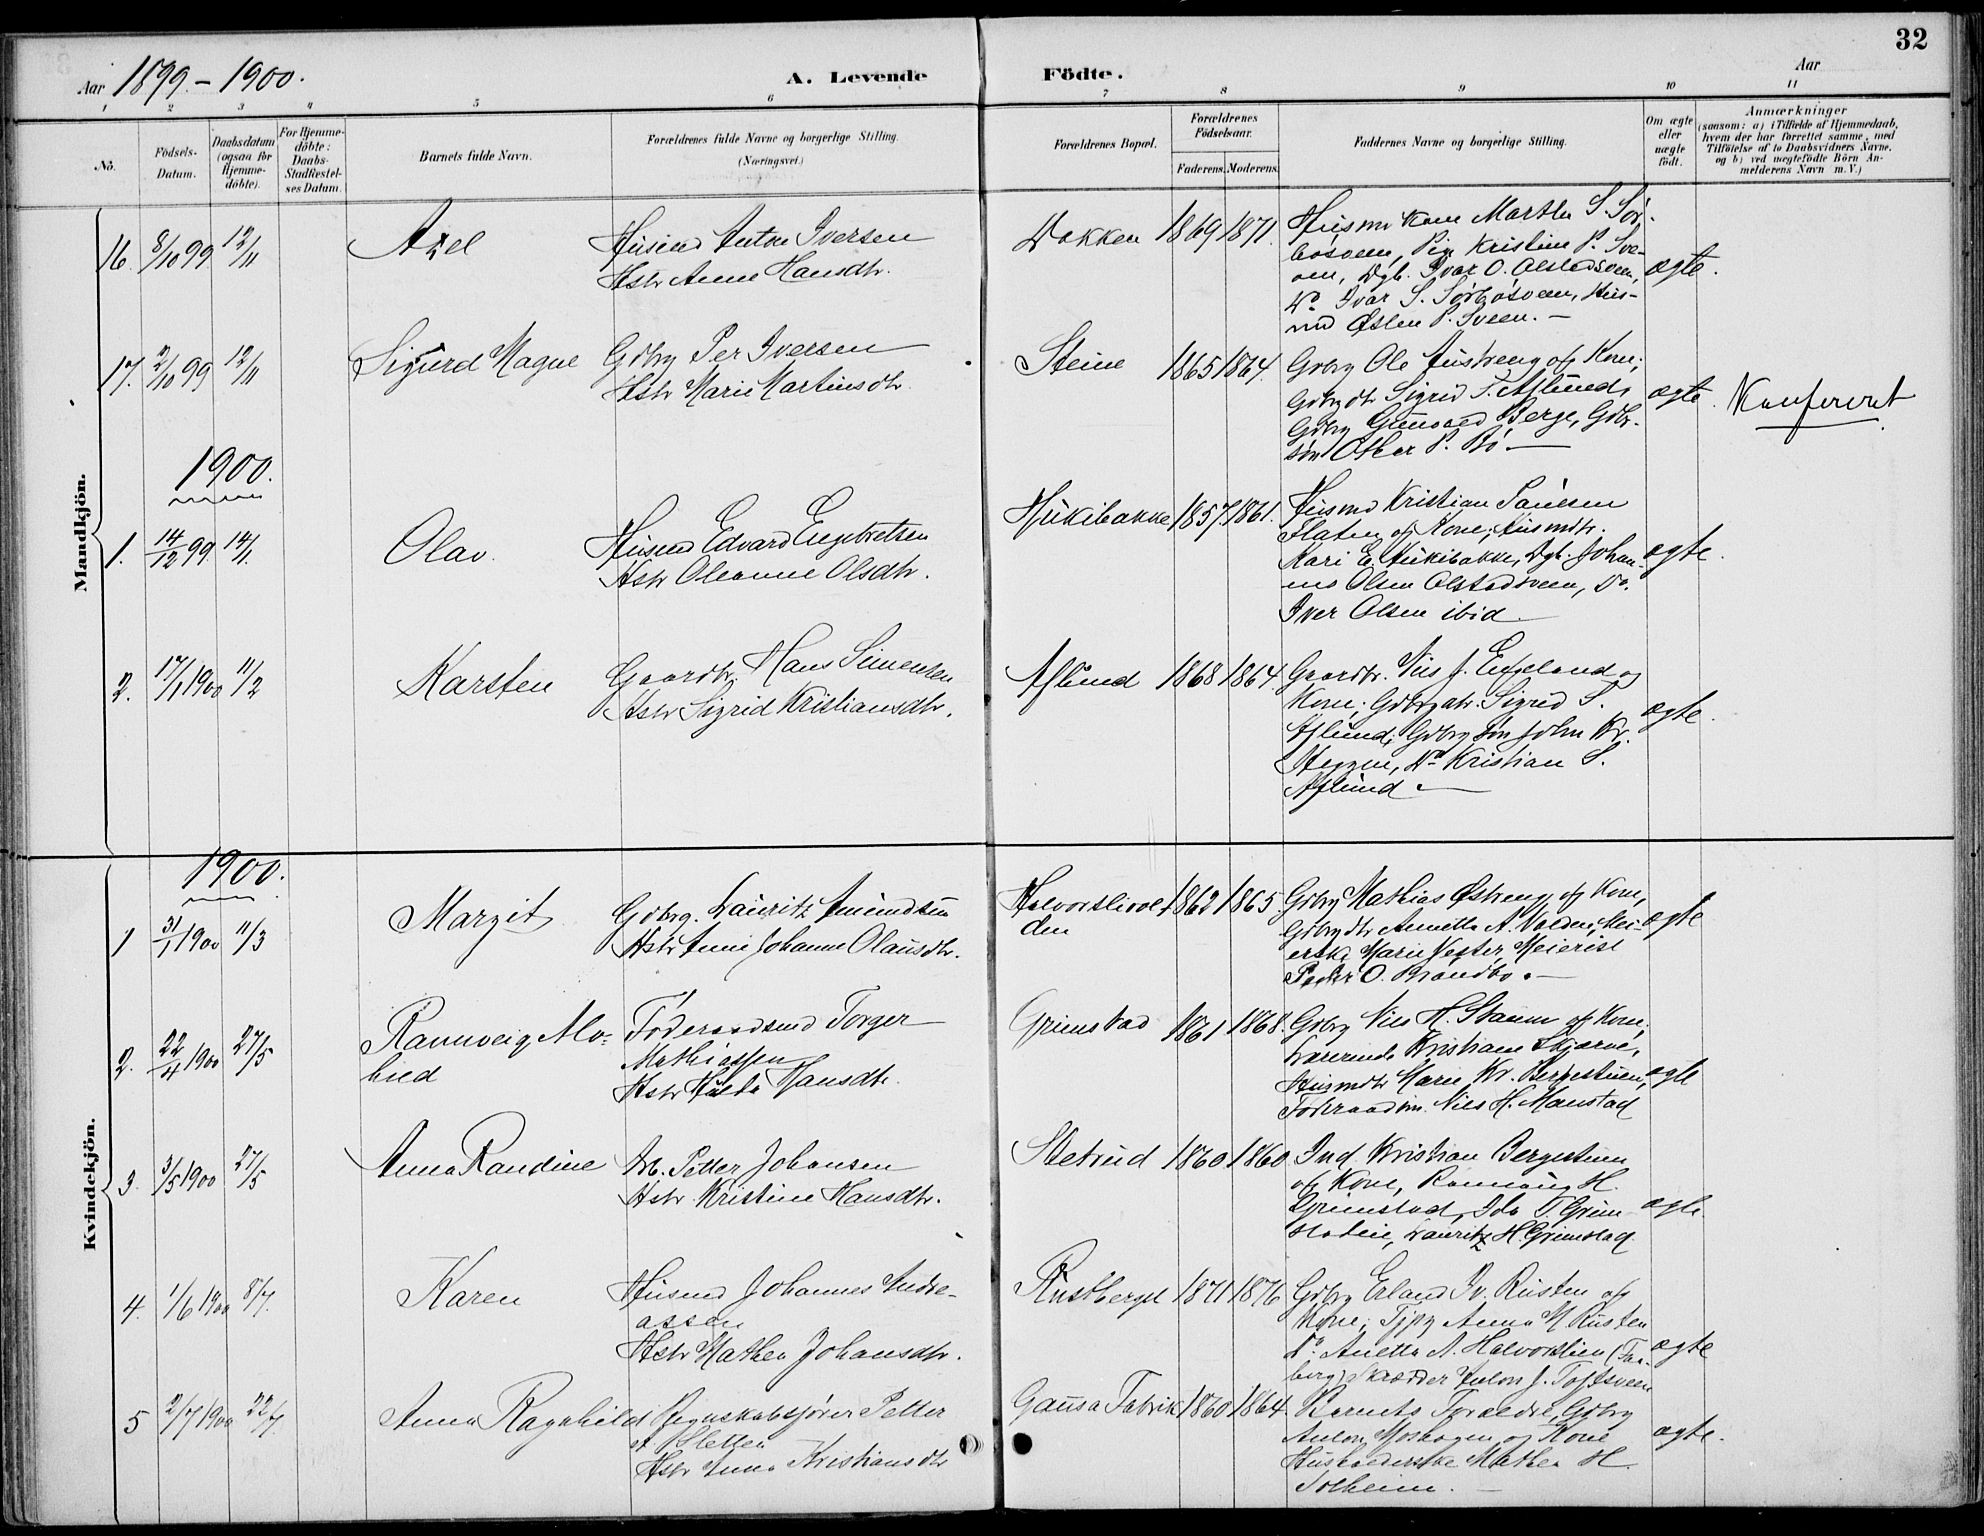 32
Aar 1899. - 1900.
A. Levende
Födte.
Aar
1 2 3 4 5 6 7 8 9 10 11
Nô.
Födsels-
Datum.
Daabsdatum
(ogsaa för
Hjemme-
döbte).
For Hjemme-
döbte:
Daabs-
Stadfæstel-
ses Datum.
Barnets fulde Navn.
Forældrenes fulde Navne og borgerlige Stilling.
(Næringsvei.)
Forældrenes Bopæl.
Forældrenes
Födselsaar.
Faderens.
Moderens.
Faddernes Navne og borgerlige Stilling.
Om ægte
eller
uægte
födt.
Anmærkninger
(saasom: a) i Tilfælde af Hjemmedaab,
hvem der har forrettet samme, med
Tilföielse af to Daabsvidners Navne,
og b) ved uægtefödte Börn An-
melderens Navn m. V.)
Mandkjön.
16. 8/10 99 12/11 Axel
Husmd Anton Iversen
Hstr Anne Hansdtr.
Dokken 1869 1871.
Husmd Kone Marthe S. Sør-
bøsveen, Pige Kristine P. Sve-
en, Dgb. Ivar O. Olstadsveen,
Do Ivar S. Sørbøsveen, Hus-
md Østen P. Sveen. -
ægte.
17. 2/10 99 12/11 Sigurd Magne
Gdbrg Per Iversen
Hstr Marie Martinsdtr.
Steine 1865 1864.
Gdbrg Ole Austreng og Kone;
Gdbrgdtr Sigrid S. Aflund,
Gdbrg Gunvald Berge, Gdbr-
søn Othar P. Bø -
ægte.
Konfereret
1900.
1. 14/12 99 14/1. Olav.
Husmd Edvard Engebretsen
Hstr Oleanne Olsdtr.
Hukibakke 1857. 1861.
Husmd Kristian Paulsen
Flaten og Kone; Husmdtr.
Mari E. Hukibakke, Dgb. Johan-
nes Olsen Olstadsveen, Do.
Iver Olsen ibid.
ægte.
2. 17/1 1900 11/2 Karsten
Gaardbr. Hans Simensen
Hstr Sigrid Kristiansdtr.
Aflund 1868 1864.
Gaardbr. Nils J. Engeland og
Kone; Gdbrgdtr. Sigrid S.
Aflund; Gdbrg søn John Kr.
Heggen, Do Kristian S.
Aflund. -
ægte.
Kvindekjön.
1900.
1 31/1 1900 11/3 Margit
Gdbrg. Lauritz Amundsen
Hstr Anne Johanne Olausdtr.
Halvorslivol-
den
1862 1865
Gdbrg Mathias Østreng og Kone,
Gdbrgdtr Annette A. Volden, Mei-
erske Marie Vester, Meierist
Peder O. Brandbo. -
ægte
2. 22/4 1900 27/5 Rannveig Alv-
hild
Föderaadsmd Torger
Mathiassen
Hstr Hulda Hansdtr.
Grimstad 1861 1868.
Gdbrg Nils H. Stavne og Kone;
Lærerinde Kristiane Skjerve,
Husmdtr Marie Kr. Bergestuen,
Föderaadsm. Nils H. Manstad
ægte
3. 3/5 1900 27/5 Anna Randine
Arb. Petter Johansen
Hstr Kristine Hansdtr.
Sletrud 1860 1860
Ind. Kristian Bergestuen
og Kone, Rannveig H.
Grimstad, Ida T. Grim-
stadeie, Lauritz H. Grimstad
ægte.
4. 1/6 1900 8/7. Karen
Husmd Johannes Andre-
assen
Hstr Mathea Johansdtr.
Rustberget 1871 1876
Gdbrg Erland Iv. Rusten og
Kone; Tjpg Anna M. Rusten
Do Anette A. Halvorslien (Faa-
berg) Skrædder Anton J. Toftsveen
ægte
5 2/7 1900 22/7. Anna Ragnhild
Regnskabsfører Petter
A. Sletten
Hstr Anna Kristiansdtr
Gausa Fabrik 1860 1864.
Barnets Forældre, Gdbrg
Anton Moshagen og Kone
Husholderske Mathea H.
Solheim. -
ægte.